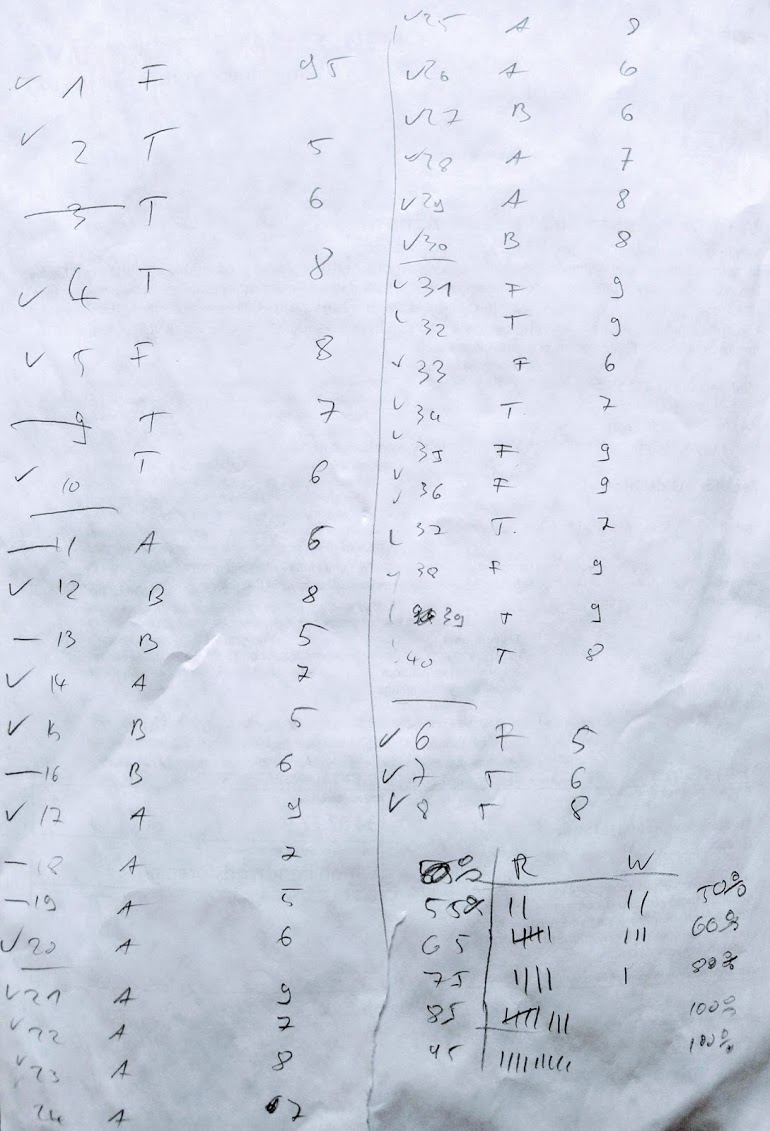 ✓ 1 F 95
✓ 2 T 5
3 T 6
✓ 4 T 8
✓ 5 F 8
9 T 7
✓ 10 T 6
— 11 A 6
✓ 12 B 8
— 13 B 5
✓ 14 A 7
✓ 15 B 5
— 16 B 6
✓ 17 A 9
— 18 A 7
— 19 A 5
✓ 20 A 6
✓ 21 A 9
✓ 22 A 7
✓ 23 A 8
24 A 7
✓ 25 A 8
✓ 26 A 6
✓ 27 B 6
✓ 28 A 7
✓ 29 A 8
✓ 30 B 8
✓ 31 F 9
✓ 32 T 9
✓ 33 F 6
✓ 34 T. 7
✓ 35 F 9
✓ 36 F 9
✓ 37 T. 7
✓ 38 F 9
39 T 9
40 T 8
✓ 6 F 5
✓ 7 T 6
✓ 8 T 8
% R W
55% || || 50%
65 |||| | ||| 60%
75 |||| | 80%
85 |||| ||| 100%
95 ||||||||| 100%